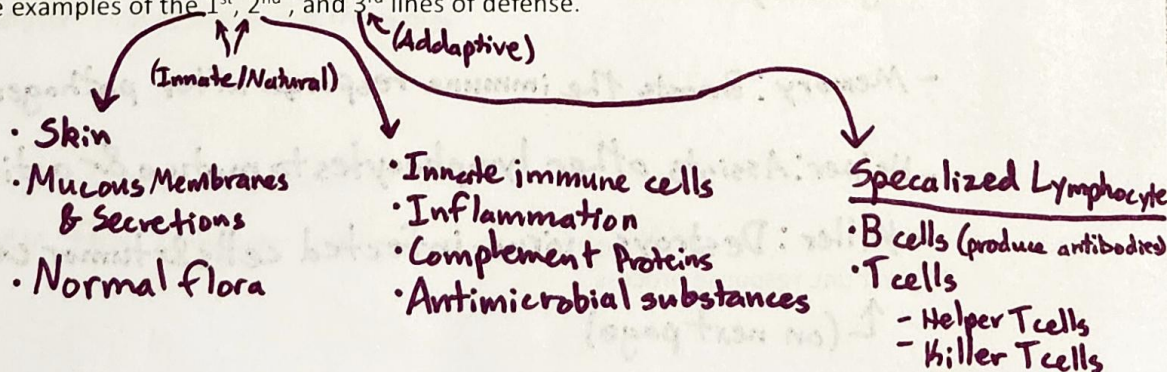 e examples of the 1st, 2nd, and 3rd lines of defense.
(Addaptive)
(Innate/Natural)
· Skin
· Mucous Membranes
& Secretions
· Normal flora
· Innate immune cells
· Inflammation
· Complement Proteins
· Antimicrobial substances
Specalized Lymphocyte
· B cells (produce antibodies)
· T cells
- Helper T cells
- Killer T cells